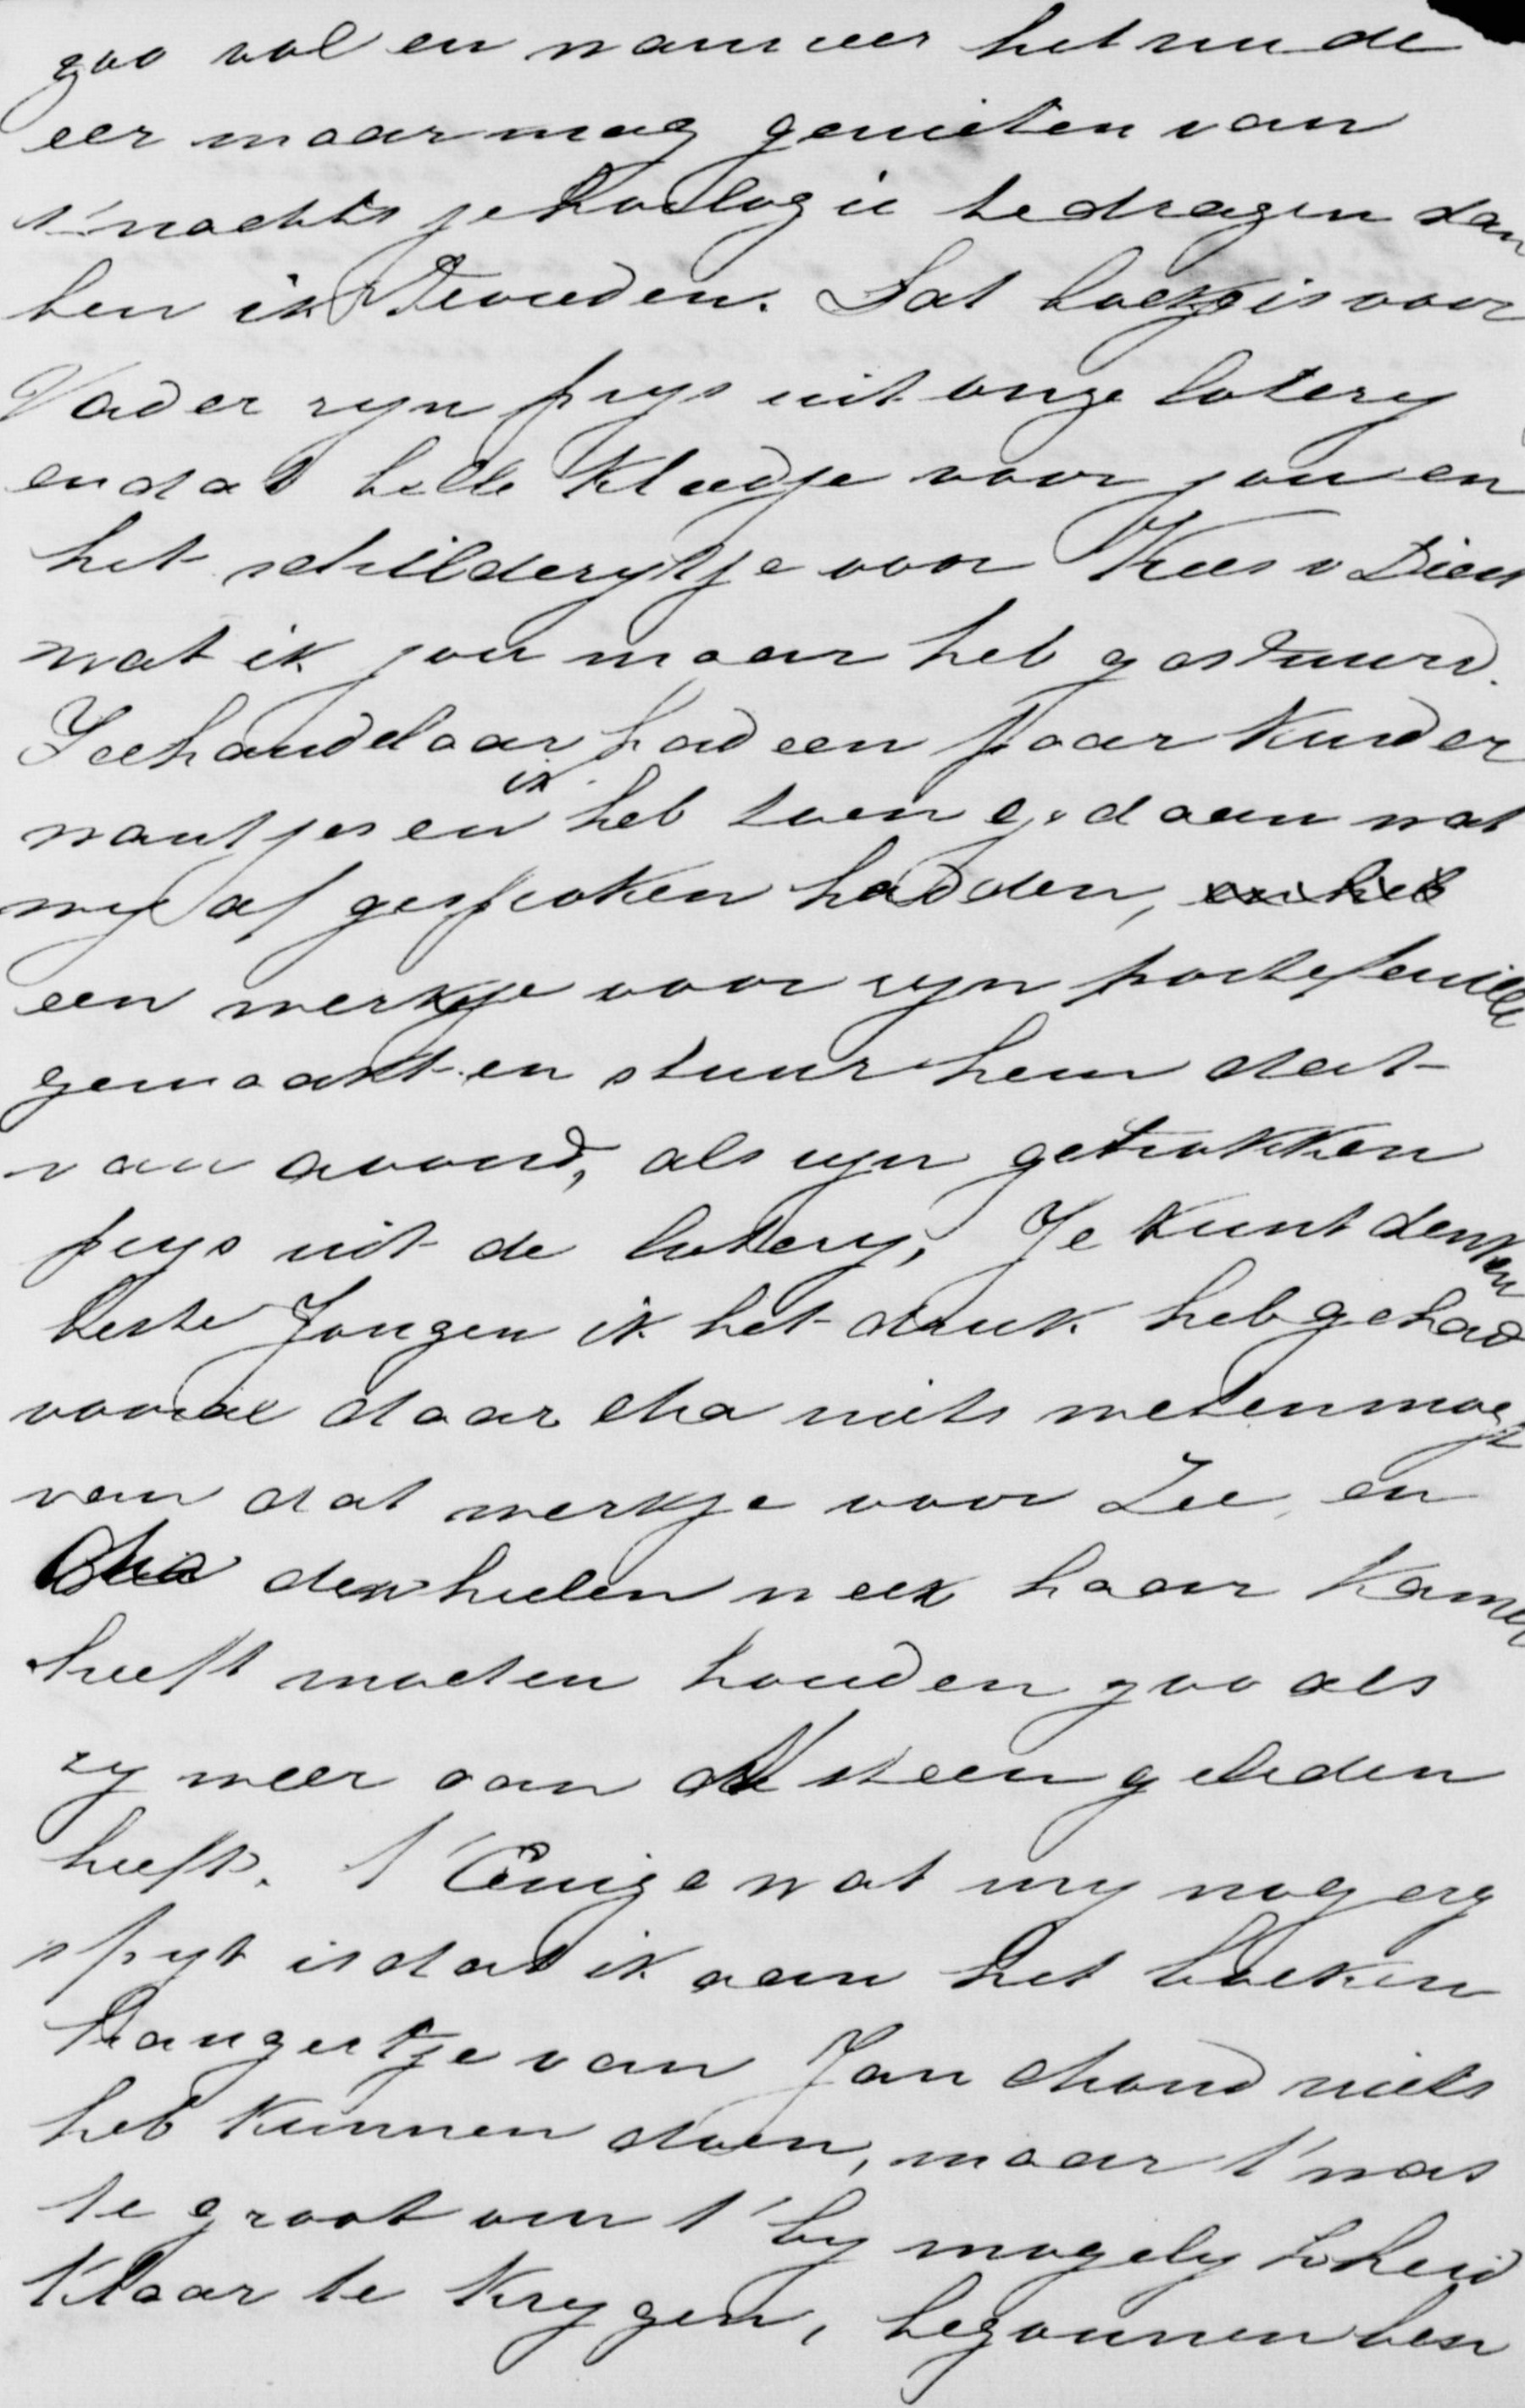 zoo vol en wanneer het nu de
eer maar mag genieten van
s'nachts je horlogie te dragen dan
ben ik tevreden. Dat boekje is voor
Vader zyn prys uit onze lotery
en dat kleedje voor jou en
het schilderytje voor Kees v Dien
wat ik jou maar heb gestuurd.
Zeehandelaar had een paar kinder
wantjes en ik heb toen gedaan wat
wye af gesproken hadden, en heb
een werkje voor zyn portefeuille
gemaakt en stuur hem dat
van avond, als zyn getrokken
prys uit de lotery, Je kunt denken
beste Jongen ik het druk heb gehad
vooral daar Cha niets weten mogt
van dat werkje voor Zee, en
Cha den heelen week haar kamer
heeft moeten houden zoo als
zy weer aan de steen geleden
heeft. t'Eenige wat my nog erg
spyt is dat ik aan het boeken
hangertje van Jan niets
heb kunnen doen, maar t'was
te groot om t'by mogelykheid
klaar te krygen, begonnen ben